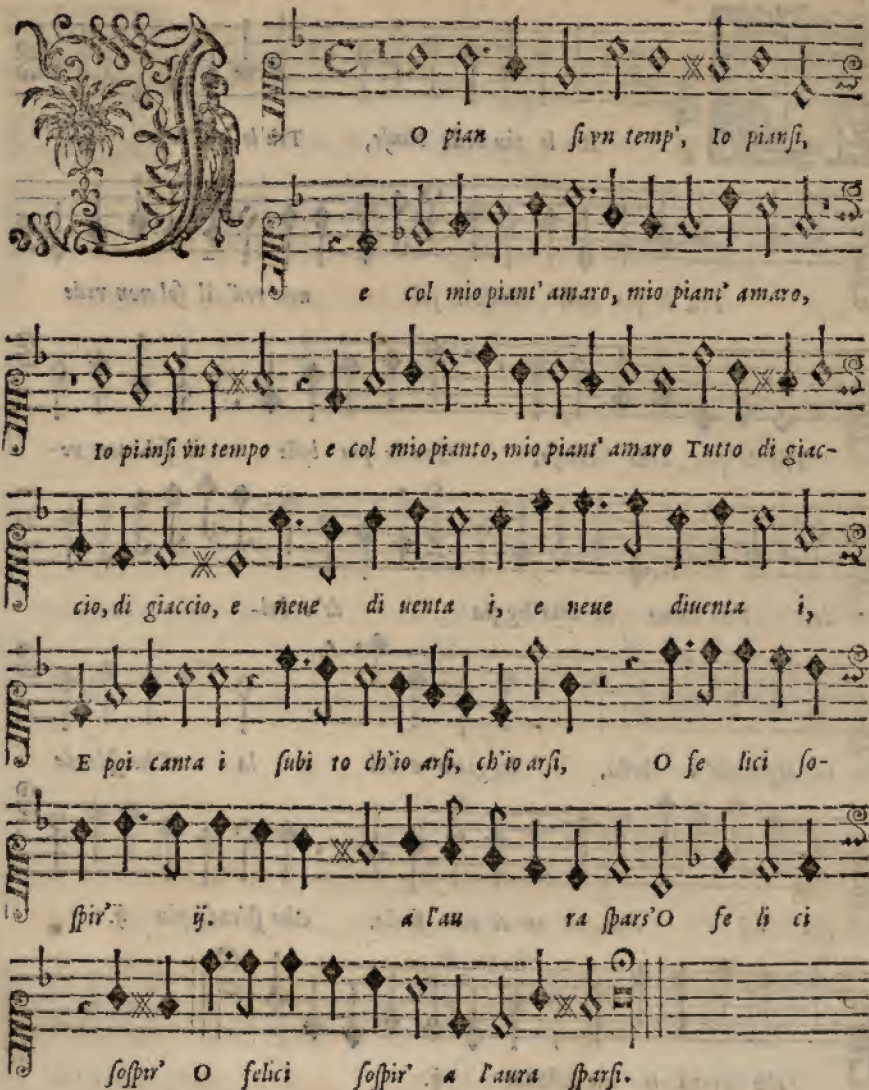 I
O pian ſi vn temp', Io pianſi,
e col mio piant' amaro, mio piant' amaro,
Io pianſi vn tempo e col mio pianto, mio piant' amaro Tutto di giac-
cio, di giaccio, e neue di uenta i, e neue diuenta i,
E poi canta i ſubi to ch'io arſi, ch'io arſi, O fe lici ſo-
ſpir' ij. a l'au ra ſpars'O fe li ci
ſoſpir' O felici ſoſpir' a l'aura ſparſi.